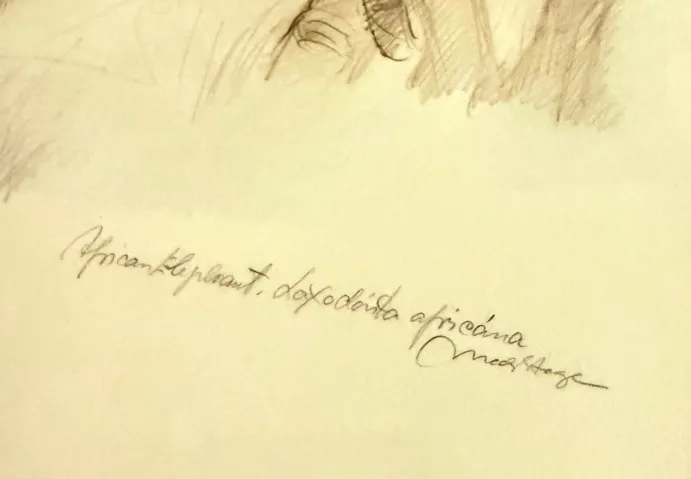 African Elephant. Loxodonta africána